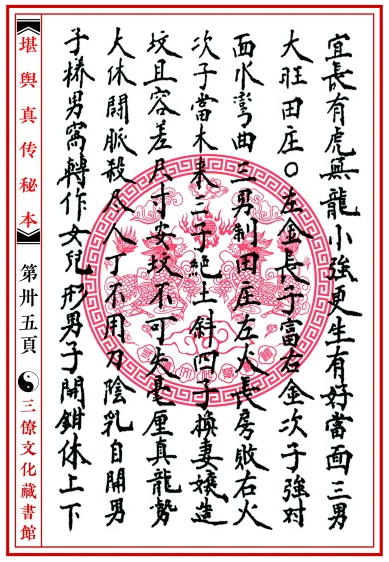 宜長有虎無龍小強更生有好當面三男
大旺田庄○左金長子富右金次子強对
面水彎曲二男制田庄左火長房敗右火
次子當木来三子絕土斜四子換妻孃造
坟且容差尺寸安坟不可失毫厘真龍勢
大休鬪脈殺尽人丁不用刀陰乳自開男
子樣男窩轉作女兒形男子開鉗休上下
【堪舆真传秘本】 第卅五頁 三僚文化藏書館